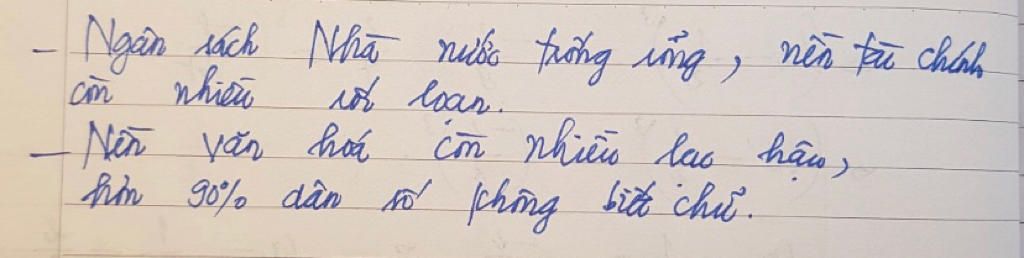 - Ngân sách Nhà nước trống rỗng, nền tài chính
còn nhiều rối loạn.
- Nền văn hoá còn nhiều lạc hậu,
hơn 90% dân số không biết chữ.